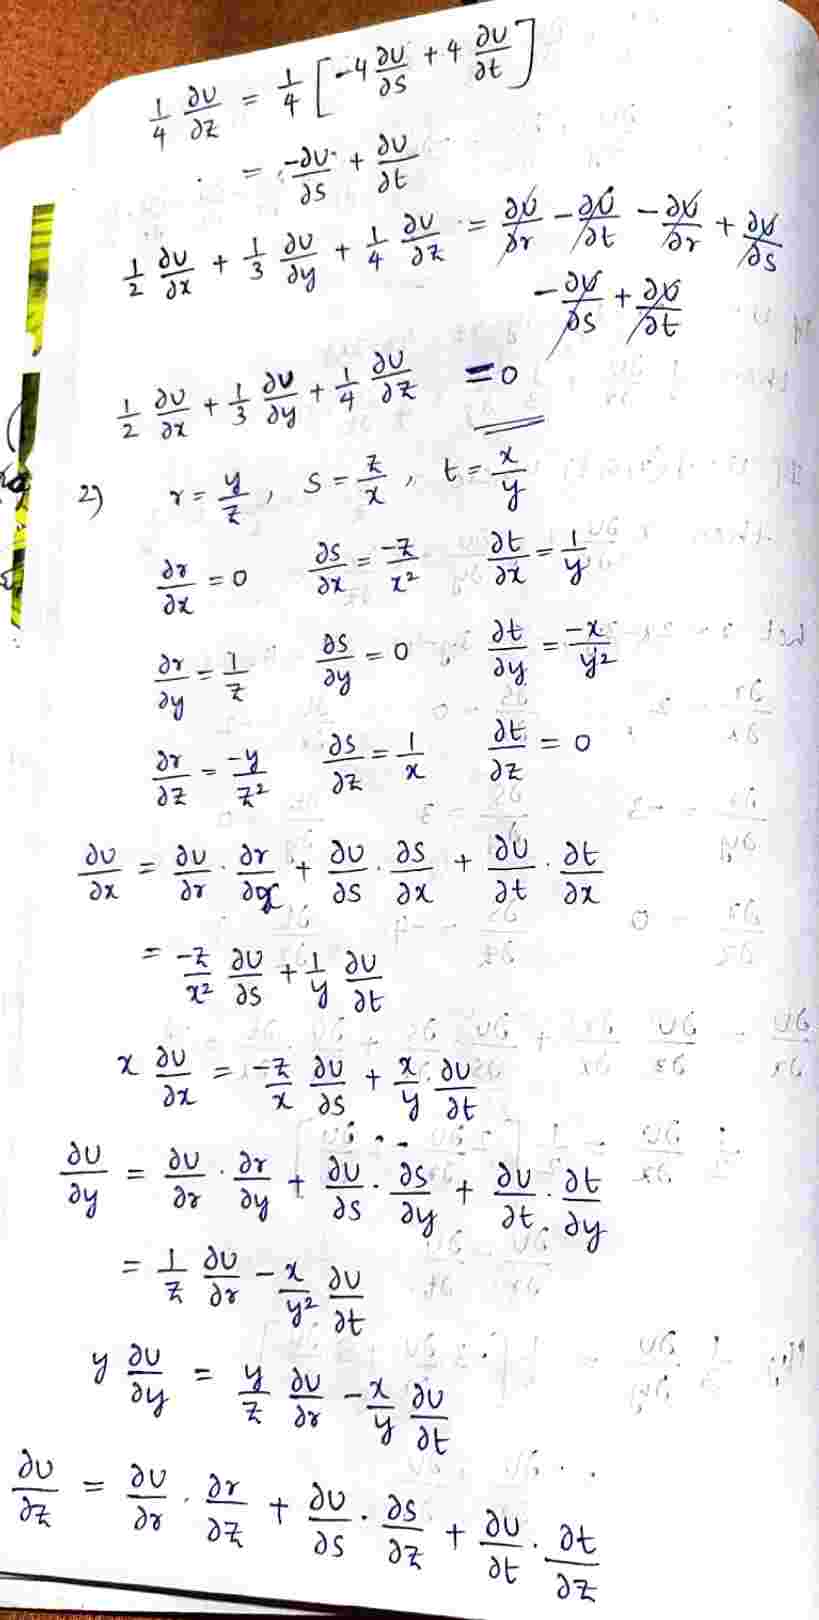 1/4 ∂U/∂z = 1/4 [-4 ∂U/∂s + 4 ∂U/∂t]
= -∂U/∂s + ∂U/∂t
1/2 ∂U/∂x + 1/3 ∂U/∂y + 1/4 ∂U/∂z = ∂U/∂r - ∂U/∂t - ∂U/∂r + ∂U/∂s
- ∂U/∂s + ∂U/∂t
1/2 ∂U/∂x + 1/3 ∂U/∂y + 1/4 ∂U/∂z = 0
2) r = y/z, s = z/x, t = x/y
∂r/∂x = 0 ∂s/∂x = -z/x² ∂t/∂x = 1/y
∂r/∂y = 1/z ∂s/∂y = 0 ∂t/∂y = -x/y²
∂r/∂z = -y/z² ∂s/∂z = 1/x ∂t/∂z = 0
∂U/∂x = ∂U/∂r · ∂r/∂x + ∂U/∂s · ∂s/∂x + ∂U/∂t · ∂t/∂x
= -z/x² ∂U/∂s + 1/y ∂U/∂t
x ∂U/∂x = -z/x ∂U/∂s + x/y ∂U/∂t
∂U/∂y = ∂U/∂r · ∂r/∂y + ∂U/∂s · ∂s/∂y + ∂U/∂t · ∂t/∂y
= 1/z ∂U/∂r - x/y² ∂U/∂t
y ∂U/∂y = y/z ∂U/∂r - x/y ∂U/∂t
∂U/∂z = ∂U/∂r · ∂r/∂z + ∂U/∂s · ∂s/∂z + ∂U/∂t · ∂t/∂z